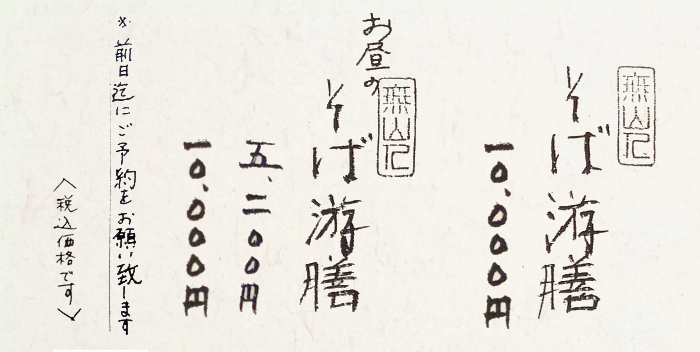 無山仁
そば游膳
一〇、〇〇〇円
お昼の
無山仁
そば游膳
五、二〇〇円
一〇、〇〇〇円
※前日迄にご予約をお願い致します
〈税込価格です〉